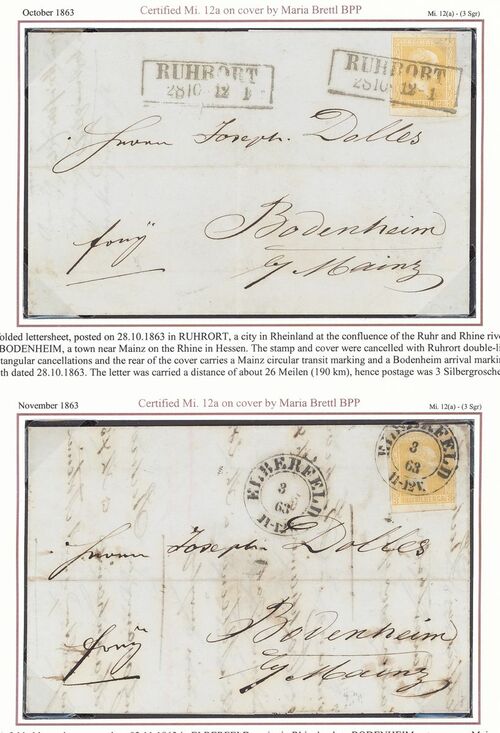 October 1863
Certified Mi. 12a on cover by Maria Brettl BPP
Mi. 12(a) - (3 Sgr)
RUHRORT
28 10 12-1
RUHRORT
28 10 12-1
Herrn Joseph Dolles
franz
Bodenheim
b/ Mainz
folded lettersheet, posted on 28.10.1863 in RUHRORT, a city in Rheinland at the confluence of the Ruhr and Rhine rive
BODENHEIM, a town near Mainz on the Rhine in Hessen. The stamp and cover were cancelled with Ruhrort double-l
ctangular cancellations and the rear of the cover carries a Mainz circular transit marking and a Bodenheim arrival markin
th dated 28.10.1863. The letter was carried a distance of about 26 Meilen (190 km), hence postage was 3 Silbergrosche
November 1863
Certified Mi. 12a on cover by Maria Brettl BPP
Mi. 12(a) - (3 Sgr)
ELBERFELD
3
63
11-12N.
ELBERFELD
3
63
11-12N.
Herrn Joseph Dolles
Bodenheim
b/ Mainz